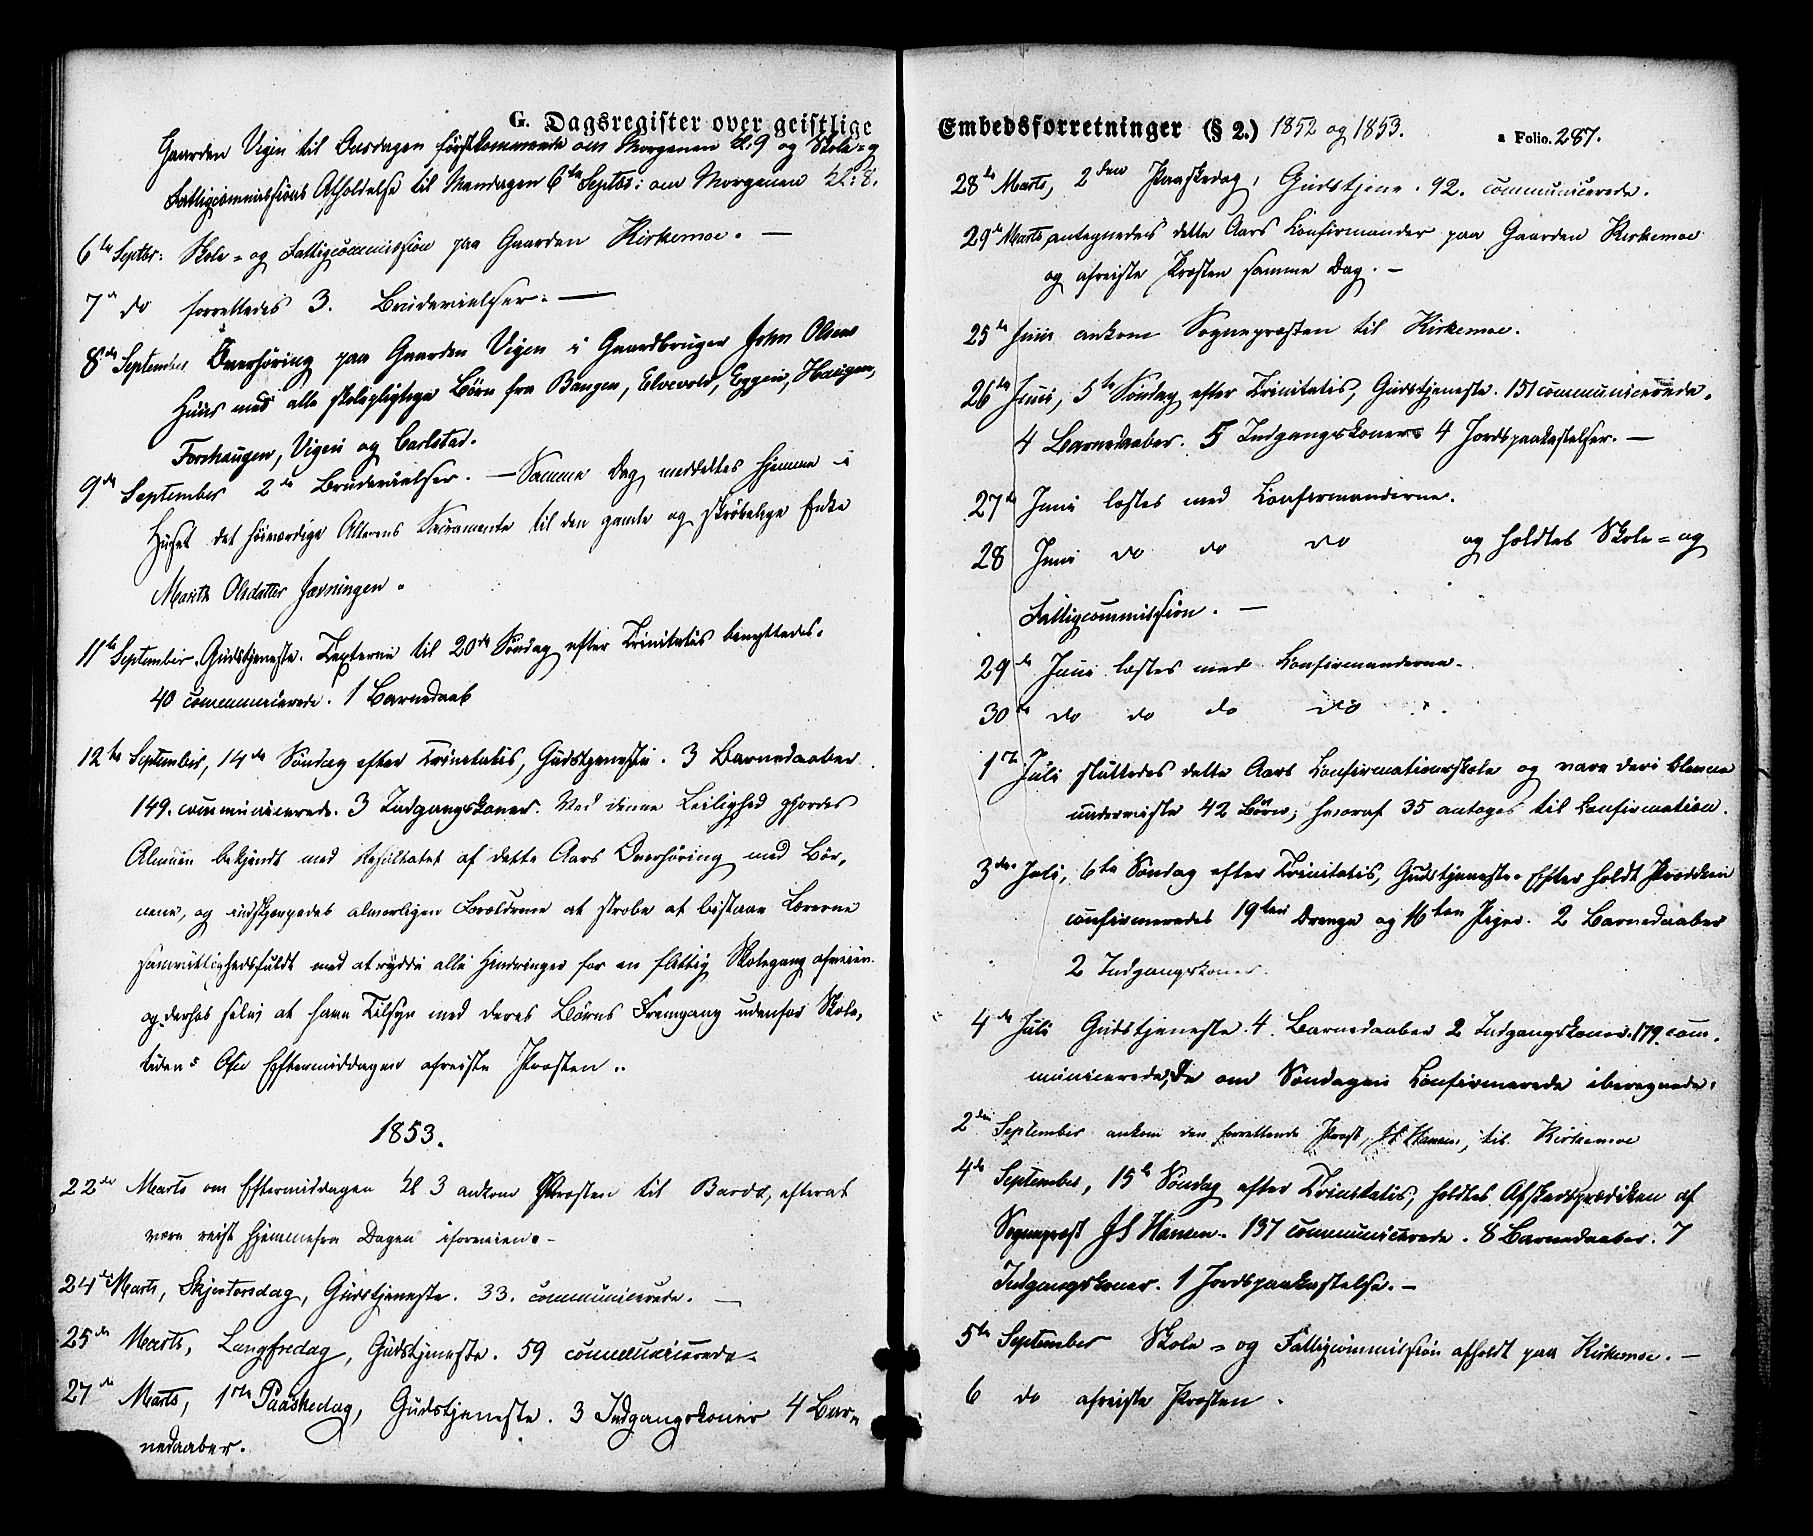 G. Dagsregister over geistlige
Gaarden Vigen til Onsdagen förstkommende om Morgenen Kl. 9 og Skole- og
Fattigcommissions Afholdelse til Mandagen 6te Septbr: om Morgenen Kl: 8.
6te Septbr: Skole- og Fattigcommission paa Gaarden Kirkemoe. —
7de do forrettedes 3. Brudevielser. —
8de September Overhöring paa Gaarden Vigen i Gaardbruger John Olsens
Huus med alle skolepligtige Börn fra Bangen, Elvevold, Eggen, Haugen,
Forhaugen, Vigen og Carlstad.
9de September 2de Brudevielser. — Samme Dag meddeltes hjemme i
Huset det höiværdige Alterens Sacramente til den gamle og skröbelige Enke
Marith Olsdatter
11te September. Gudstjeneste. Texterne til 20de Söndag efter Trinitatis benyttedes.
40 communicerede. 1 Barnedaab
12te September, 14de Söndag efter Trinitatis, Gudstjeneste. 3 Barnedaaber
149. communicerede. 3 Indgangskoner. Ved denne Leilighed gjordes
Almuen bekjendt med Resultatet af dette Aars Overhöring med Bör-
nene, og indskjærpedes alvorligen Forældrene at stræbe at bistaae Lærerne
samvittighedsfuldt med at rydde alle Hindringer for en flittig Skolegang afveien
og derhos selv at have Tilsyn med deres Börns Fremgang udenfor Skole-
tiden. Om Eftermiddagen afreiste Præsten.
1853.
22de Marts om Eftermiddagen Kl 3 ankom Præsten til Bardo, efterat
være reist hjemmefra Dagen iforveien. -
24de Marts, Skjertorsdag, Gudstjeneste. 33. communicerede. —
25de Marts, Langfredag, Gudstjeneste. 59 communicerede.
27de Marts, 1ste Paaskedag, Gudstjeneste. 3 Indgangskoner 4 Bar-
nedaaber.
Embedsforretninger (§ 2.) 1852 og 1853.
a Folio. 287.
28de Marts, 2den Paaskedag, Gudstjene. 92. communicerede.
29de Marts antegnedes dette Aars Confirmander paa Gaarden Kirkemoe
og afreiste Præsten samme Dag. —
25de Juni ankom Sognepræsten til Kirkemoe.
26de Juni, 5te Söndag efter Trinitatis, Gudstjeneste. 151 communicerede.
4 Barnedaaber. 5 Indgangskoner 4 Jordspaakastelser. —
27de Juni læstes med Confirmanderne.
28 Juni do do do og holdtes Skole- og
Fattigcommission. —
29de Juni læstes med Confirmanderne.
30te do do do do
1ste Juli sluttedes dette Aars Confirmationsskole og vare deri blevne
underviste 42 Börn, hvoraf 35 antoges til Confirmation.
3die Juli, 6te Söndag efter Trinitatis, Gudstjeneste. Efter holdt Prædiken
confirmeredes 19ten Drenge og 16ten Piger. 2 Barnedaaber
2 Indgangskoner.
4de Juli Gudstjeneste. 4. Barnedaaber 2 Indgangskoner. 179. com-
municerede, De om Söndagen Confirmerede iberegnede.
2den September ankom den forrettende Præst, JS Hansen, til Kirkemoe
4de September, 15de Söndag efter Trinitatis, holdtes Afskedsprædiken af
Sognepræst JS Hansen. 137 communicerede. 8 Barnedaaber. 7
Indgangskoner. 1 Jordspaakastelse. —
5te September Skole- og Fattigcommission afholdt paa Kirkemoe. —
6 do afreiste Præsten.